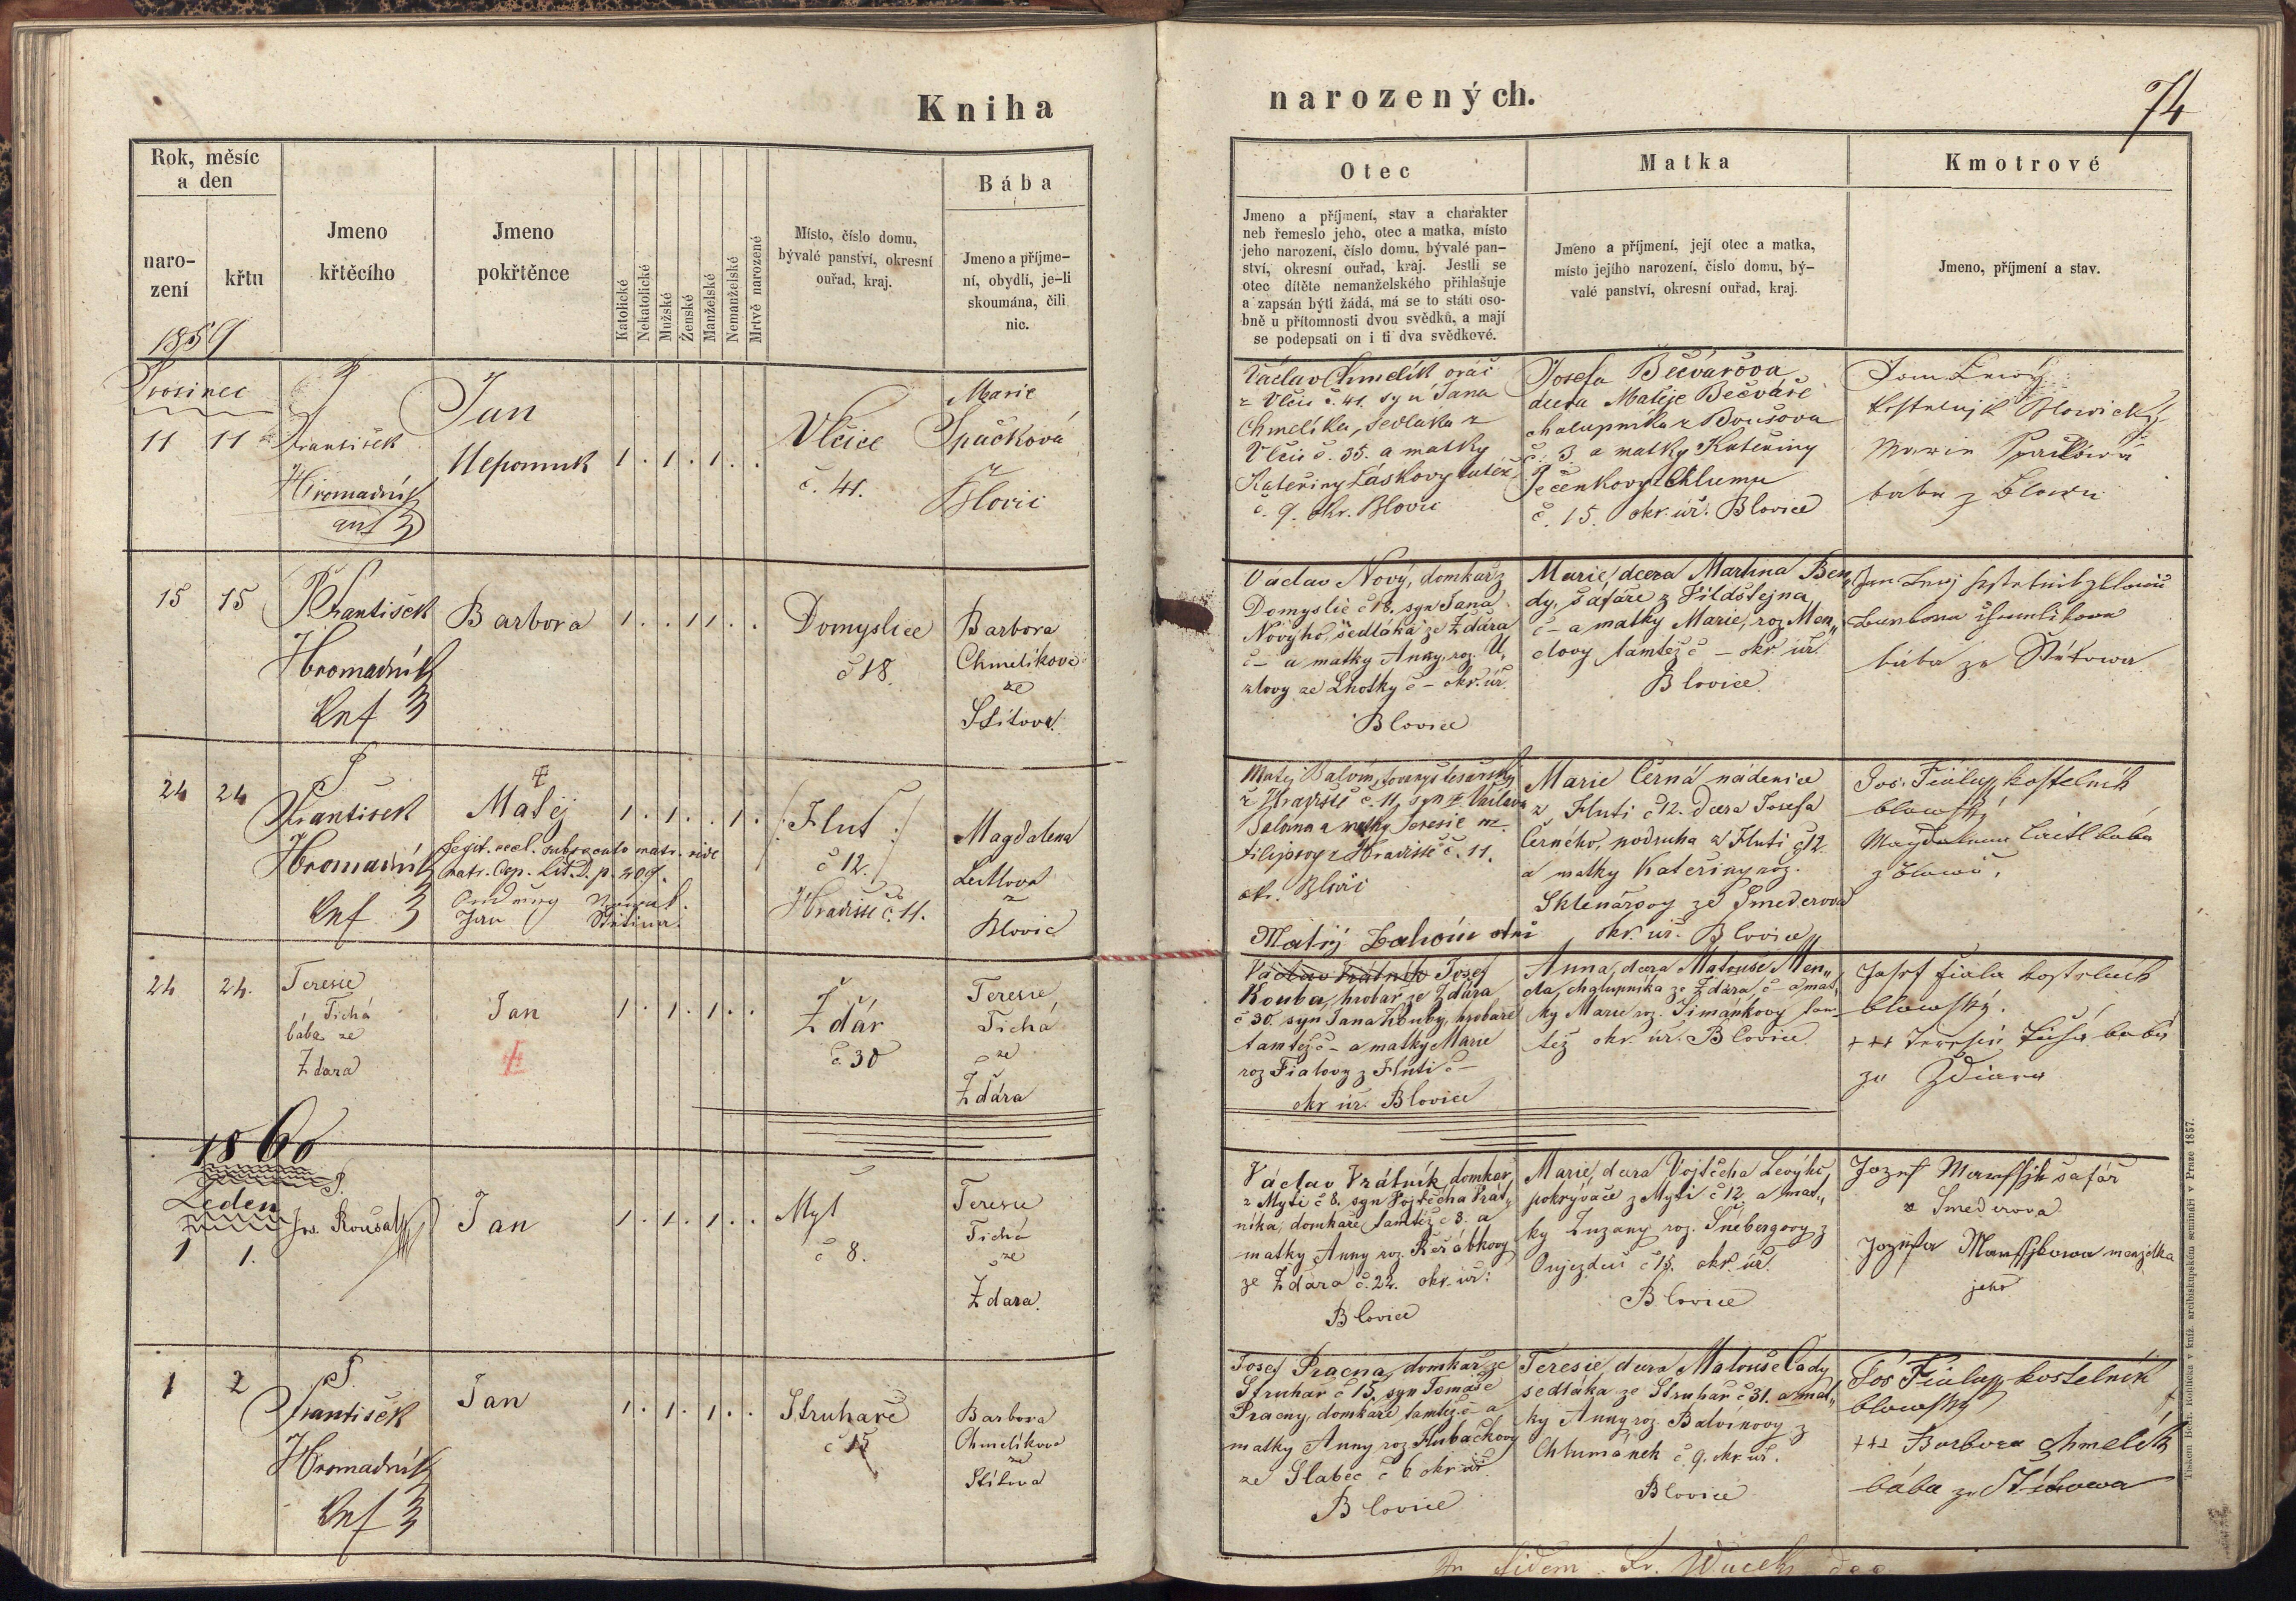 Kniha
narozených.
74
Rok, měsíc
a den
naro-
zení
křtu
Jmeno
křtěcího
Jmeno
pokřtěnce
Katolické
Nekatolické
Mužské
Ženské
Manželské
Nemanželské
Mrtvě narozené
Místo, číslo domu,
bývalé panství, okresní
ouřad, kraj.
Bába
Jmeno a příjme-
ní, obydlí, je-li
skoumána, čili
nic.
Otec
Jmeno a příjmení, stav a charakter
neb řemeslo jeho, otec a matka, místo
jeho narození, číslo domu, bývalé pan-
ství, okresní ouřad, kraj. Jestli se
otec dítěte nemanželského přihlašuje
a zapsán býti žádá, má se to státi oso-
bně u přítomnosti dvou svědků, a mají
se podepsati on i ti dva svědkové.
Matka
Jmeno a příjmení, její otec a matka,
místo jejího narození, číslo domu, bý-
valé panství, okresní ouřad, kraj.
Kmotrové
Jmeno, příjmení a stav.
1859
Prosinec
11 11
P
František
Hromadník
Jan
Nepomuk
1 . 1 . 1 . .
Vlčice
č. 41.
Marie
Špačková
z
Blovic
Václav Chmelík oráč
z Vlčic č. 41. syn Jana
Chmelíka, sedláka z
Vlčic č. 35. a matky
Kateřiny Láskovy tutéž
č. 9. okr. Blovic
Josefa Bečvářova
dcera Matěje Bečváře
chalupníka z Boušova
č. 3 a matky Kateřiny
Pečenkovy z Chlumu
č. 15. okr. úř. Blovice
Jan
kostelník Blowický
Marie
bába z Blowic
15 15
P
František
Hromadník
Barbora
1 . . 1 1 . .
Domyslice
č 18.
Barbora
Chmelíkova
ze
Štítova.
Václav Nový, domkář z
Domyslic č 18. syn Jana
Nového, sedláka ze Ždára
č – a matky Anny, roz. U„
zlovy ze Lhotky č – okr. úř.
Blovice
Marie, dcera Martina Ben„
dy, šafáře z Vildštejna
č – a matky Marie, roz Men„
clovy tamtéž č – okr úř.
Blovice.
Jan kostelník z Blowic
Barbora Chmelíkowa
bába ze Štítowa
24 24
P
František
Hromadník
Matěj
1 . 1 . . 1 .
Legit. eccl. subsecuto matr. vide
matr. Cop. Lit. D. p. 209.
Jan
/: Hluť :/
č 12.
Hradiště č. 11.
Magdalena
z
Blovic
Matěj Balvín, tovaryš tesařský
z Hradiště č. 11, syn Václava
Balvína a matky Teresie roz.
Filipovy z Hradiště č. 11.
okr. Blovic
Matěj otec
Marie Černá nádenice
z Hluti č 12. dcera Josefa
Černého, podruha z Hluti č 12.
a matky Kateřiny roz.
Sklenářovy ze Smederova
okr. úř. Blovice
Jos. Fiala kostelník
blowský
Magdalena bába
z Blowic.
24 24.
Teresie
Tichá
bába ze
Ždára
Jan
1 . 1 . 1 . .
Ždár
č. 30
Teresie
Tichá
ze
Ždára
Václav Vrátník Josef
Kouba, hrobař ze Ždára
č 30. syn Jana Kouby, hrobaře
tamtéž č – a matky Marie
roz Fialovy z Hluti č –
okr úř. Blovice
Anna, dcera Matouše Men„
cla, chalupníka ze Ždára, č – a mat„
ky Marie roz. Šimánkovy tam-
též okr. úř. Blovice
Josef Fiala kostelník
blowský.
+++ Teresie Tichá bába
ze Ždiara
1860
Leden
1 1.
P.
Jos. Rousal
Jan
1 . 1 . 1 . .
Myť
č 8.
Teresie
Tichá
ze
Ždara.
Václav Vrátník, domkář
z Myti č 8. syn Vojtěcha Vrát„
níka, domkáře tamtéž č 8. a
matky Anny roz. Řeřábkovy
ze Ždára č. 22. okr. úř:
Blovice
Marie, dcera Vojtěcha Levýho
pokrývače z Myti č 12. a mat„
ky Zuzany roz. Šnebergovy z
Oujezdu č 15. okr. úř.
Blovice
Jozef šafář
z Smederova
Jozefa manželka
jeho
1 2
P.
František
Hromadník
Jan
1 . 1 . 1 . .
Struhaře
č 15
Barbora
Chmelíkova
ze
Štítova
Josef Pracna, domkář ze
Struhař č 15, syn Tomáše
Pracny, domkáře tamtéž č – a
matky Anny roz. Hubačkovy
ze Slabec č 6 okr úř.
Blovice
Teresie, dcera Matouše Cady
sedláka ze Struhař č 31. a mat„
ky Anny roz. Balvínovy z
Chlumánek č. 9. okr. úř.
Blovice
Jos Fiala kostelník
blowský
+++ Barbora Chmelík
bába ze Štítowa
Tiskem Bedř. Rohlíčka v kníž. arcibiskupském semináři v Praze 1857.
In fidem